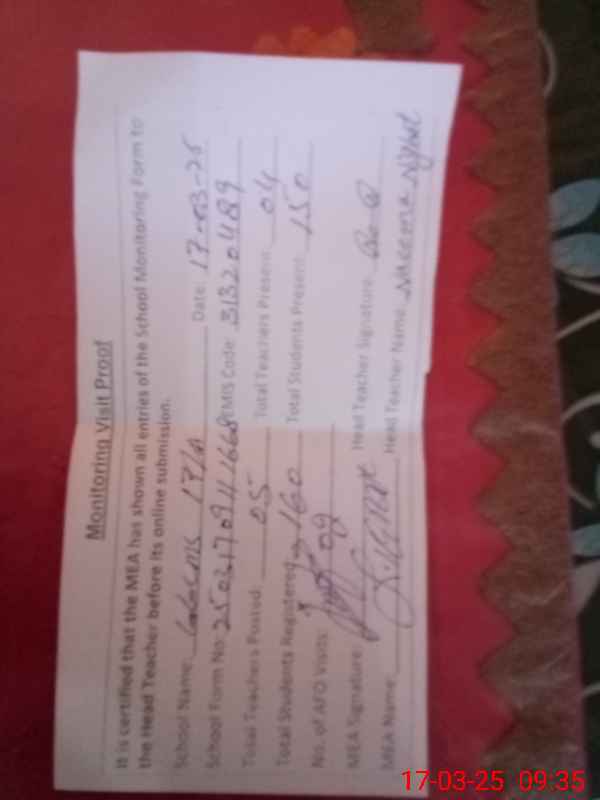 Monitoring Visit Proof
It is certified that the MEA has shown all entries of the School Monitoring Form to
the Head Teacher before its online submission.
School Name: 17/A Date: 17-03-25
School Form No: EMIS Code: 31320489
Total Teachers Posted: 05 Total Teachers Present: 04
Total Students Registered: 160 Total Students Present: 150
No. of AEO Visits: 09
MEA Signature: Head Teacher Signature:
MEA Name: Head Teacher Name: Naeema
17-03-25 09:35